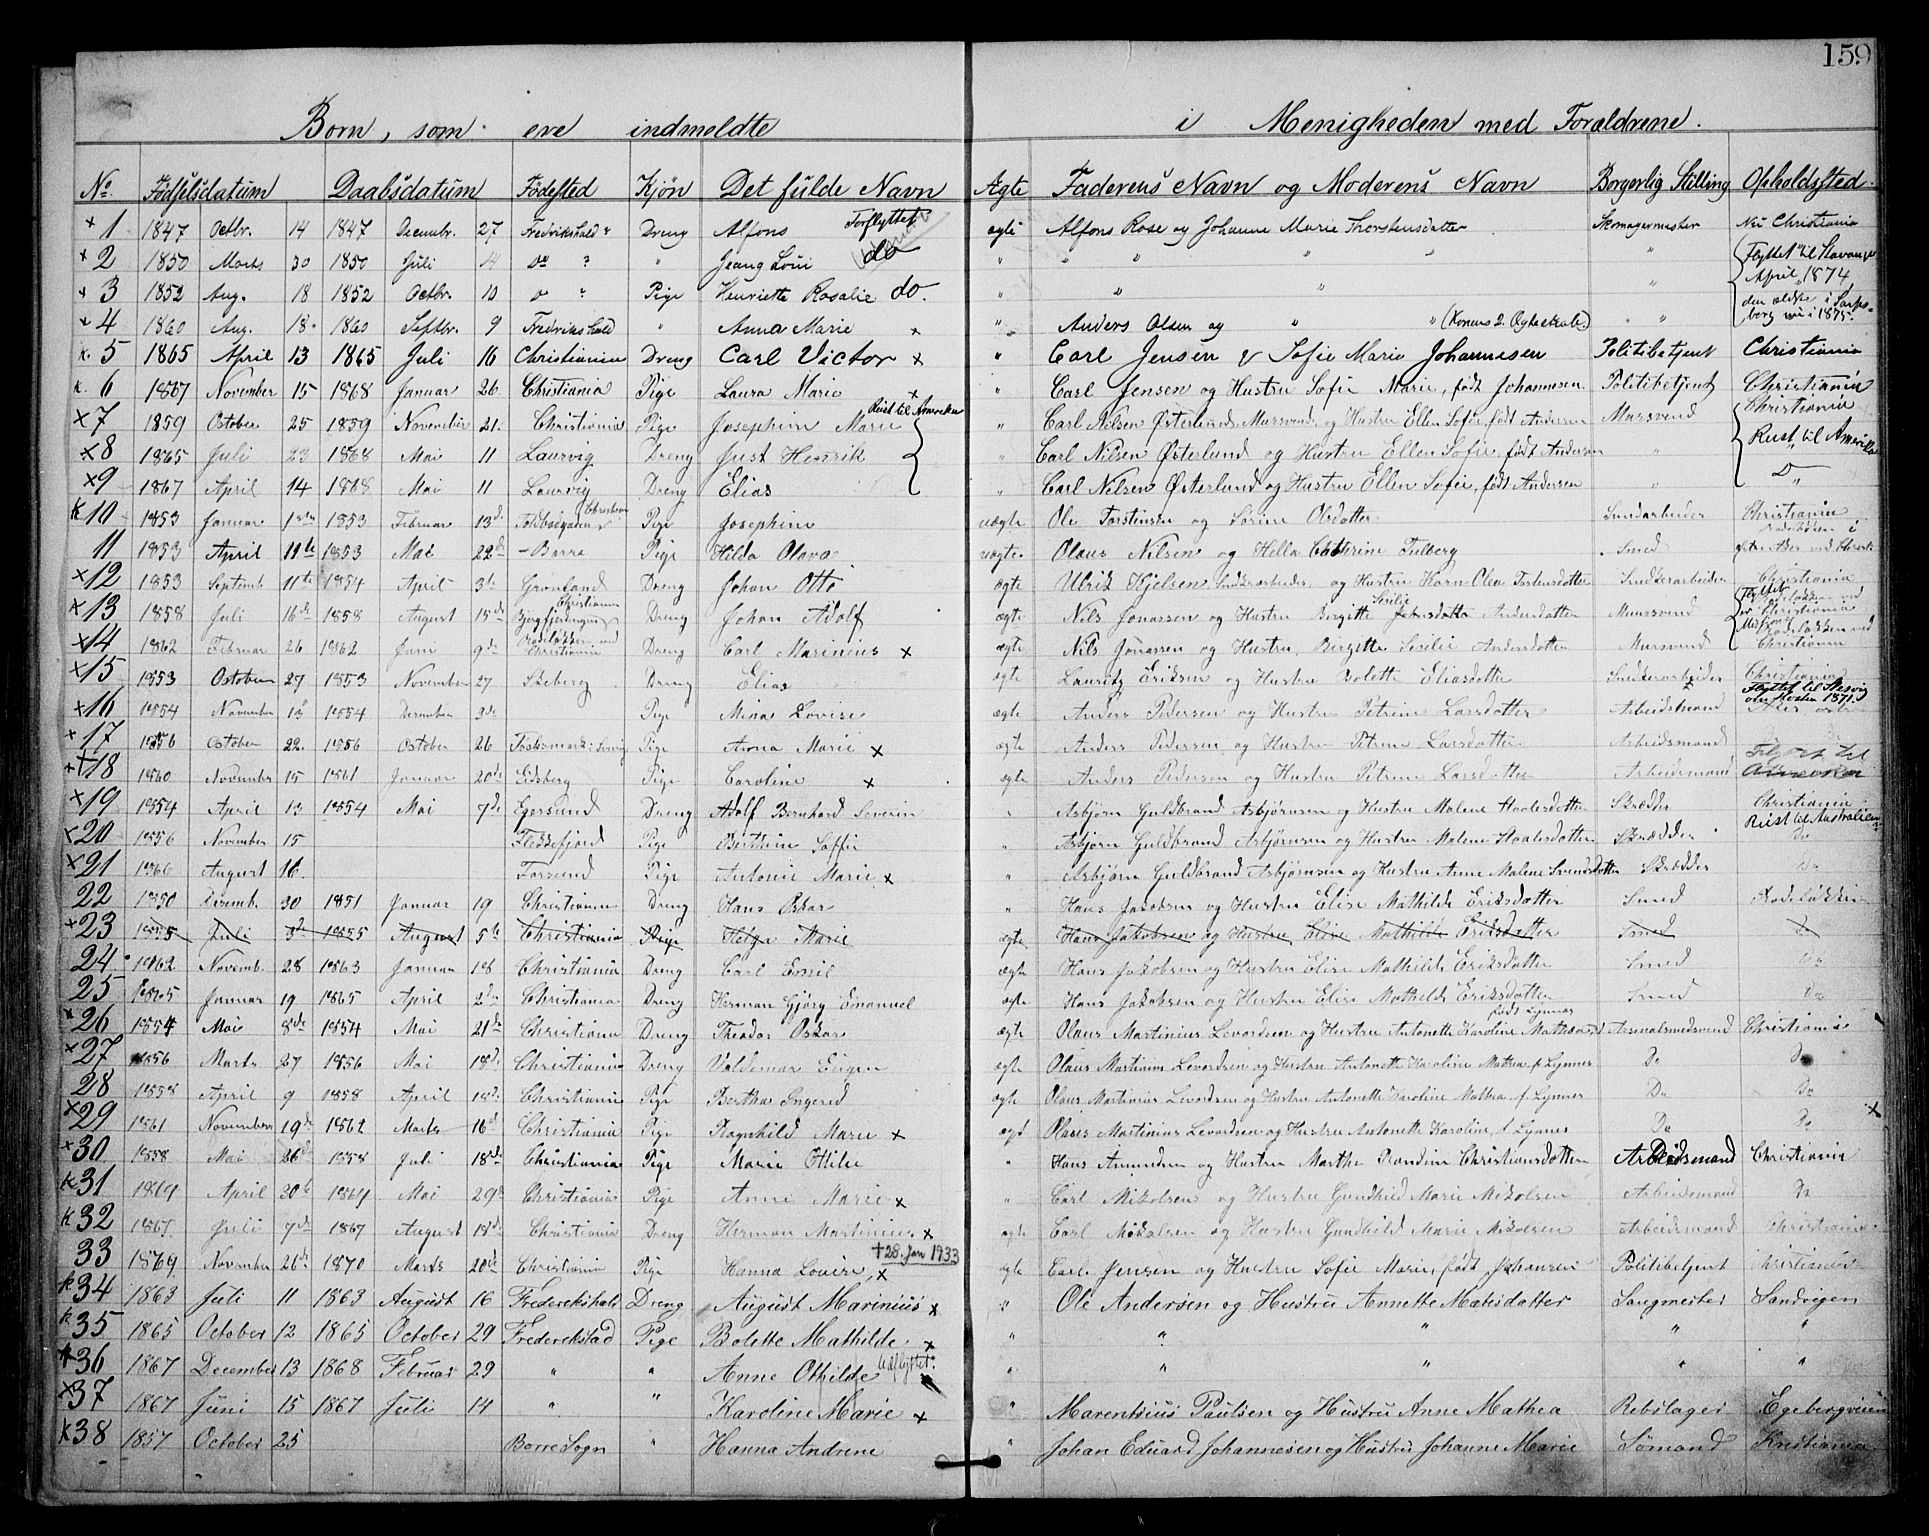 159
Børn, som ere indmeldte i Menigheden med Forældrene.
No. Fødselsdatum Daabsdatum Fødested Kjøn Det fulde Navn Ægte Faderens Navn og Moderens Navn Borgerlig Stilling Opholdssted.
x 1 1847 Octbr. 14 1847 Decembr. 27 Fredrikshald Dreng Alfons Forflyttet ægte Alfons Rose og Johanne Marie Thorstensdatter Skomagermester Nu Christiania
x 2 1850 Marts 30 1850 Juli 14 do ? " Jeang Loui do " " " " " Flyttet til Stavanger
x 3 1852 Aug. 18 1852 Octbr. 10 do ? Pige Henriette Rosalie do. " " " " April 1874
den ældste i Sarpsborg nu i 1875.
x 4 1860 Aug. 18 1860 Septbr. 9 Fredrikshald " Anna Marie x " Anders Olsen og " " (Konens 2. Ægteskab.) "
k. 5 1865 April 13 1865 Juli 16 Christiania Dreng Carl Victor x " Carl Jensen & Sofie Marie Johannesen Politibetjent Christiania
k. 6 1867 November 15 1868 Januar 26 Christiania Pige Laura Marie x " Carl Jensen og Hustru Sofie Marie, født Johannesen Politibetjent Christiania
x 7 1859 October 25 1859 November 21. Christiania Pige Josephine Marie Reist til Amerika " Carl Nilsen Østerlund, Mursvend, og Hustru Ellen Sofie, født Andersen Mursvend Christiania
x 8 1865 Juli 23 1868 Mai 11 Laurvig Dreng Just Henrik " Carl Nilsen Østerlund og Hustru Ellen Sofie, født Andersen " Reist til Amerika
x 9 1867 April 14 1868 Mai 11 Laurvig Dreng Elias " Carl Nilsen Østerlund og Hustru Ellen Sofie, født Andersen " Do
k 10 1853 Januar 1853 Februar 13de Toldbodgaden Pige Josephine uægte Ole Torstensen og Sorine Olsdatter Christiania
11 1853 April 11te 1853 Mai 22de Borre Pige Hilda Olava uægte. Olaus Nilsen og Hella Cathrine Fulberg Smed
x 12 1853 Septemb. 11te 1854 April 3de Grønland Christiania Dreng Johan Otto ægte Ulrik Kjelsen, Snedkerarbeider og Hustru Karn Olea Torstensdatter Snedkerarbeider Christiania
x 13 1858 Juli 16de 1858 August 15de Dreng Johan Adolf ægte Nils Jonassen og Hustru Birgitte Sesilie Andersdatter Muursvend
x 14 1862 Februar 26 1862 Juni 9de Rodeløkken ved Christiania Dreng Carl Marinius x ægte Nils Jonassen og Hustru Birgitte Sesilie Andersdatter Mursvend Rodeløkken ved Christiania
x 15 1853 October 27 1853 November 27 Skeberg Dreng Elias ægte Lauritz Eriksen og Hustru Bolette Eliasdatter Snedkerarbeider Christiania
x 16 1854 November 13 1854 December 3de Pige Mina Lovise ægte Anders Pedersen og Hustru Petrine Larsdatter Arbeidsmand
x 17 1856 October 22. 1856 October 26 Pige Anna Marie x ægte Anders Pedersen og Hustru Petrine Larsdatter Arbeidsmand Do
x 18 1860 November 15 1861 Januar 20de Eidsberg Pige Caroline x ægte Anders Pedersen og Hustru Petrine Larsdatter Arbeidsmand
x 19 1854 April 13 1854 Mai 7de Egersund Dreng Adolf Bernhard Severin " Asbjørn Guldbrand Asbjørnsen og Hustru Malene Hoalesdatter Skrædder Christiania
x 20 1856 November 15 Flekkefjord Pige Berthin Soffie " Asbjørn Guldbrand Asbjørnsen og Hustru Malene Hoalesdatter Skrædder Reist til Australien Do
x 21 1866 August 16. Farsund Pige Antonie Marie x " Asbjørn Guldbrand Asbjørnsen og Hustru Anne Malene Svendsdatter Skrædder Do
22 1850 Decemb. 30 1851 Januar 19 Christiania Dreng Hans Oskar " Hans Jakobsen og Hustru Elise Mathilde Eriksdatter Smed Rodeløkken
x 23 1855 Juli 3de 1855 August 5te Christiania Pige Helga Marie ægte Hans Jakobsen og Hustru Elise Mathilde Eriksdatter Smed Do
24 1862 Novemb. 28 1863 Januar 18 Christiania Dreng Carl Emil ægte Hans Jakobsen og Hustru Elise Mathilde Eriksdatter Smed Do
25 1865 Januar 19 1865 April 2de Christiania Dreng Herman Gjørg Emanuel ægte Hans Jakobsen og Hustru Elise Mathilde Eriksdatter Smed Do
x 26 1854 Mai 8de 1854 Mai 21de Christiania Dreng Theodor Oskar ægte Olaus Martinius Levordsen og Hustru Antonette Karoline Mathea født Lynnes Arsenalsmedsvend Christiania
x 27 1856 Marts 27 1856 Mai 18de Christiania Dreng Valdemar Eugen ægte Olaus Martinius Levordsen og Hustru Antonette Karoline Mathea f. Lynnes Do Do
28 1858 April 9 1858 April 18de Christiania Pige Bertha Ingerid ægte Olaus Martinius Levordsen og Hustru Antonette Karoline Mathea f. Lynnes Do Do
x 29 1861 November 19de 1862 Marts 16de Christiania Pige Ragnhild Marie x ægt Olaus Martinius Levordsen og Hustru Antonette Karoline f. Lynnes Do Do x
x 30 1858 Mai 26de 1858 Juli 18de Christiania Pige Marie Ottilie " Hans Amundsen og Hustru Marthe Randine Christiansdatter Arbeidsmand Christiania
k 31 1864 April 20de 1864 Mai 29de Christiania Pige Anne Marie x " Carl Mikolsen og Hustru Gundhild Marie Mikolsen Arbeidsmand Do
k 32 1867 Juli 7de 1867 August 18de Christiania Dreng Herman Martinius x ægte Carl Mikalsen og Hustru Gundhild Marie Mikolsen Arbeidsmand Christiania
33 1869 November 26de 1870 Marts 20de Christiania Pige Hanna Lovise x † 28. Jan 1933 ægte Carl Jensen og Hustru Sofie Marie, født Johansen Politibetjent Christiania
k 34 1863 Juli 11 1863 August 16 Frederekshald Dreng August Marinius x " Ole Andersen og Hustru Annette Matsdatter Saugmester Sandvigen
k 35 1865 October 12 1865 October 29 Frederekstad Pige Bolette Mathilde x " " " " "
x 36 1867 December 13 1868 Februar 29 " " Anne Othilde Udflyttet " " " " "
x 37 1867 Juni 15 1867 Juli 14 " " Karoline Marie x " Marentsius Paulsen og Hustru Anne Mathea Rebslager Egebergveien
k 38 1857 October 25 Borre Sogn " Hanna Andrene " Johan Eduard Johannesen og Hustru Johanne Marie Sømand Kristiania